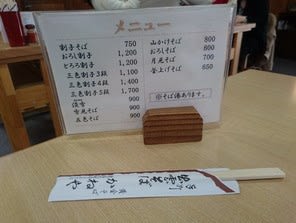 メニュー
割子そば 750
おろし割子 1,200
とろろ割子 1,200
三色割子3段 1,100
三色割子4段 1,400
三色割子5段 1,700
淡雪 900
雪見そば 900
五色そば 900
山かけそば 800
おろしそば 800
月見そば 700
釜上げそば 650
◎そば湯あります。
手打
出雲そば
かねや